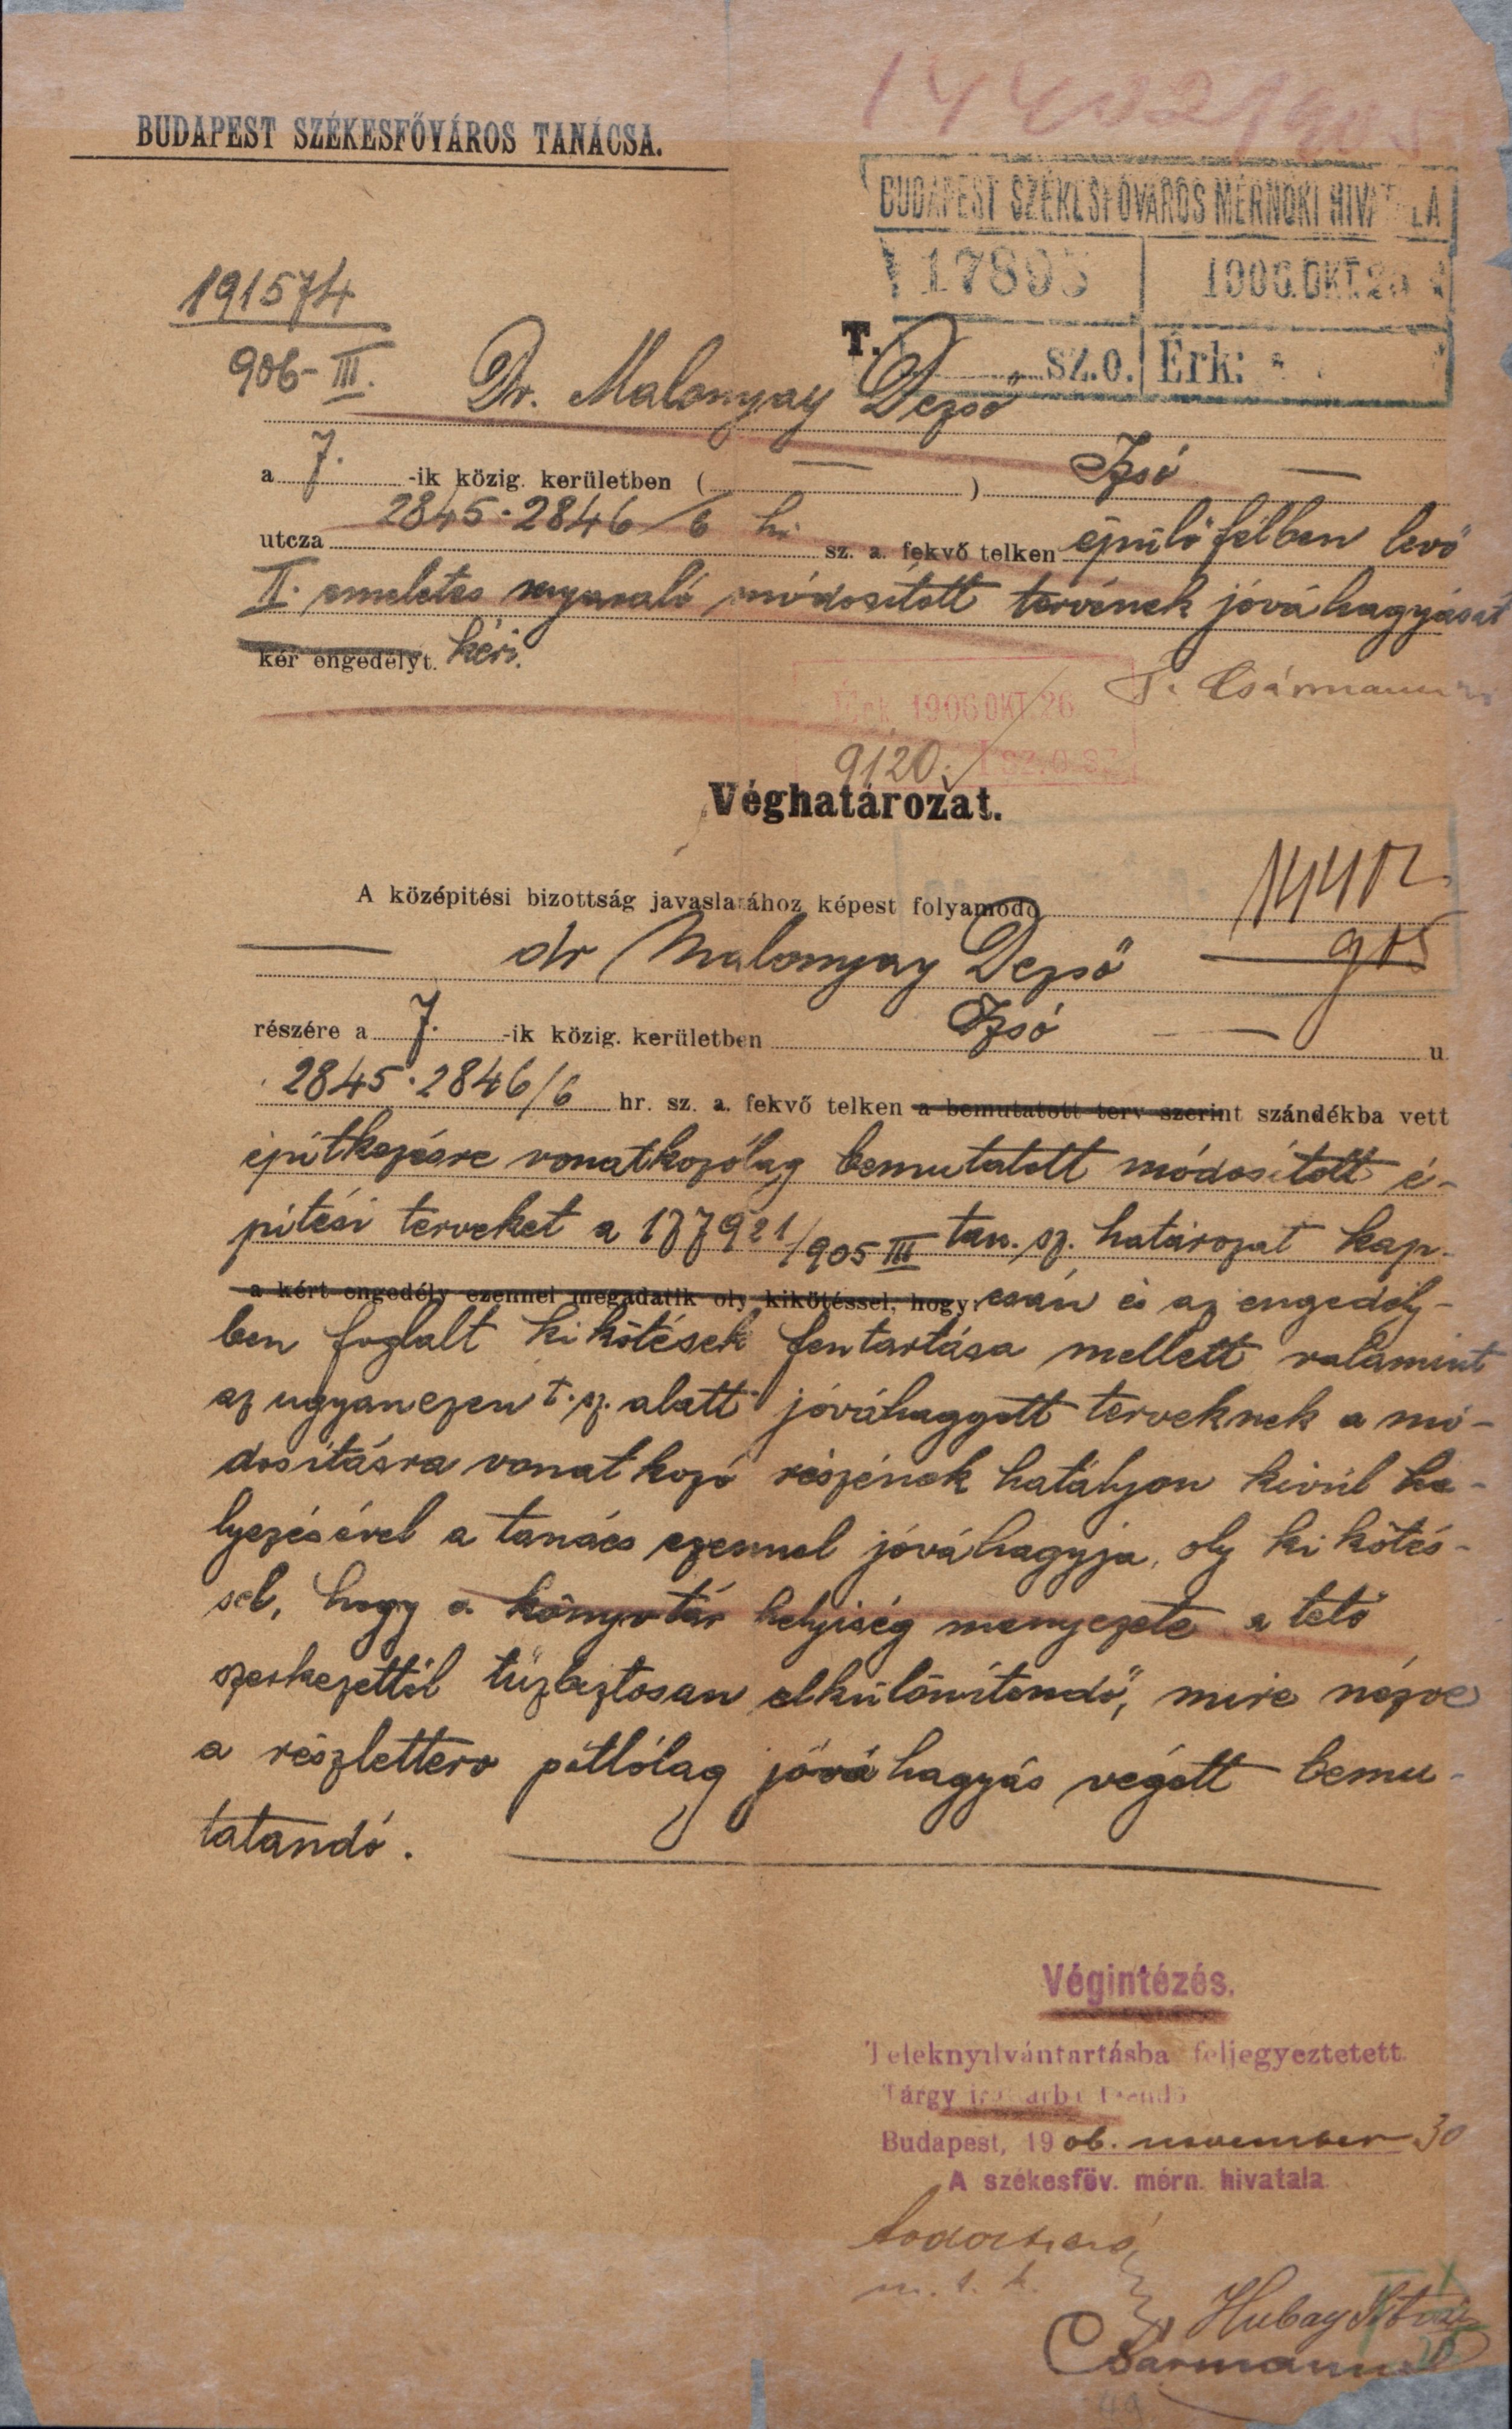 14402/905
BUDAPEST SZÉKESFŐVÁROS TANÁCSA.
BUDAPEST SZÉKESFŐVÁROS MÉRNÖKI HIVATALA
17893 1906.OKT.26
191574
906-III.
T. sz.o. Érk:
Dr. Malonyay Dezső
a 7. -ik közig. kerületben ( — ) Izsó —
utcza 2845·2846/6 hr sz. a. fekvő telken épülőfélben levő
II. emeletes nyaraló módosított tervének jóváhagyását
kér engedélyt. kéri.
T. Csármann
Érk. 1906 OKT 26.
9120. I SZ.O.SZ.
Véghatározat.
14402
905
A középitési bizottság javaslatához képest folyamodó
dr Malonyay Dezső
részére a 7. -ik közig. kerületben Izsó — u.
2845·2846/6 hr. sz. a. fekvő telken a bemutatott terv szerint szándékba vett
építkezésre vonatkozólag bemutatott módosított é-
pítési terveket a 177921/905 III tan. sz. határozat kap-
a kért engedély ezennel megadatik oly kikötéssel, hogy: csán és az engedély-
ben foglalt kikötések fentartása mellett valamint
az ugyanezen t. sz. alatt jóváhagyott terveknek a mó-
dosításra vonatkozó részének hatályon kívül he-
lyezésével a tanács ezennel jóváhagyja, oly kikötés-
sel, hogy a könyvtár helyiség menyezete a tető
szerkezettől tűzbiztosan elkülönítendő, mire nézve
a részletterv pótlólag jóváhagyás végett bemu-
tatandó.
Végintézés.
Teleknyilvántartásba feljegyeztetett.
Tárgy irattárba teendő
Budapest, 1906. november 30
A székesföv. mérn. hivatala.
Hubay István
Csármann